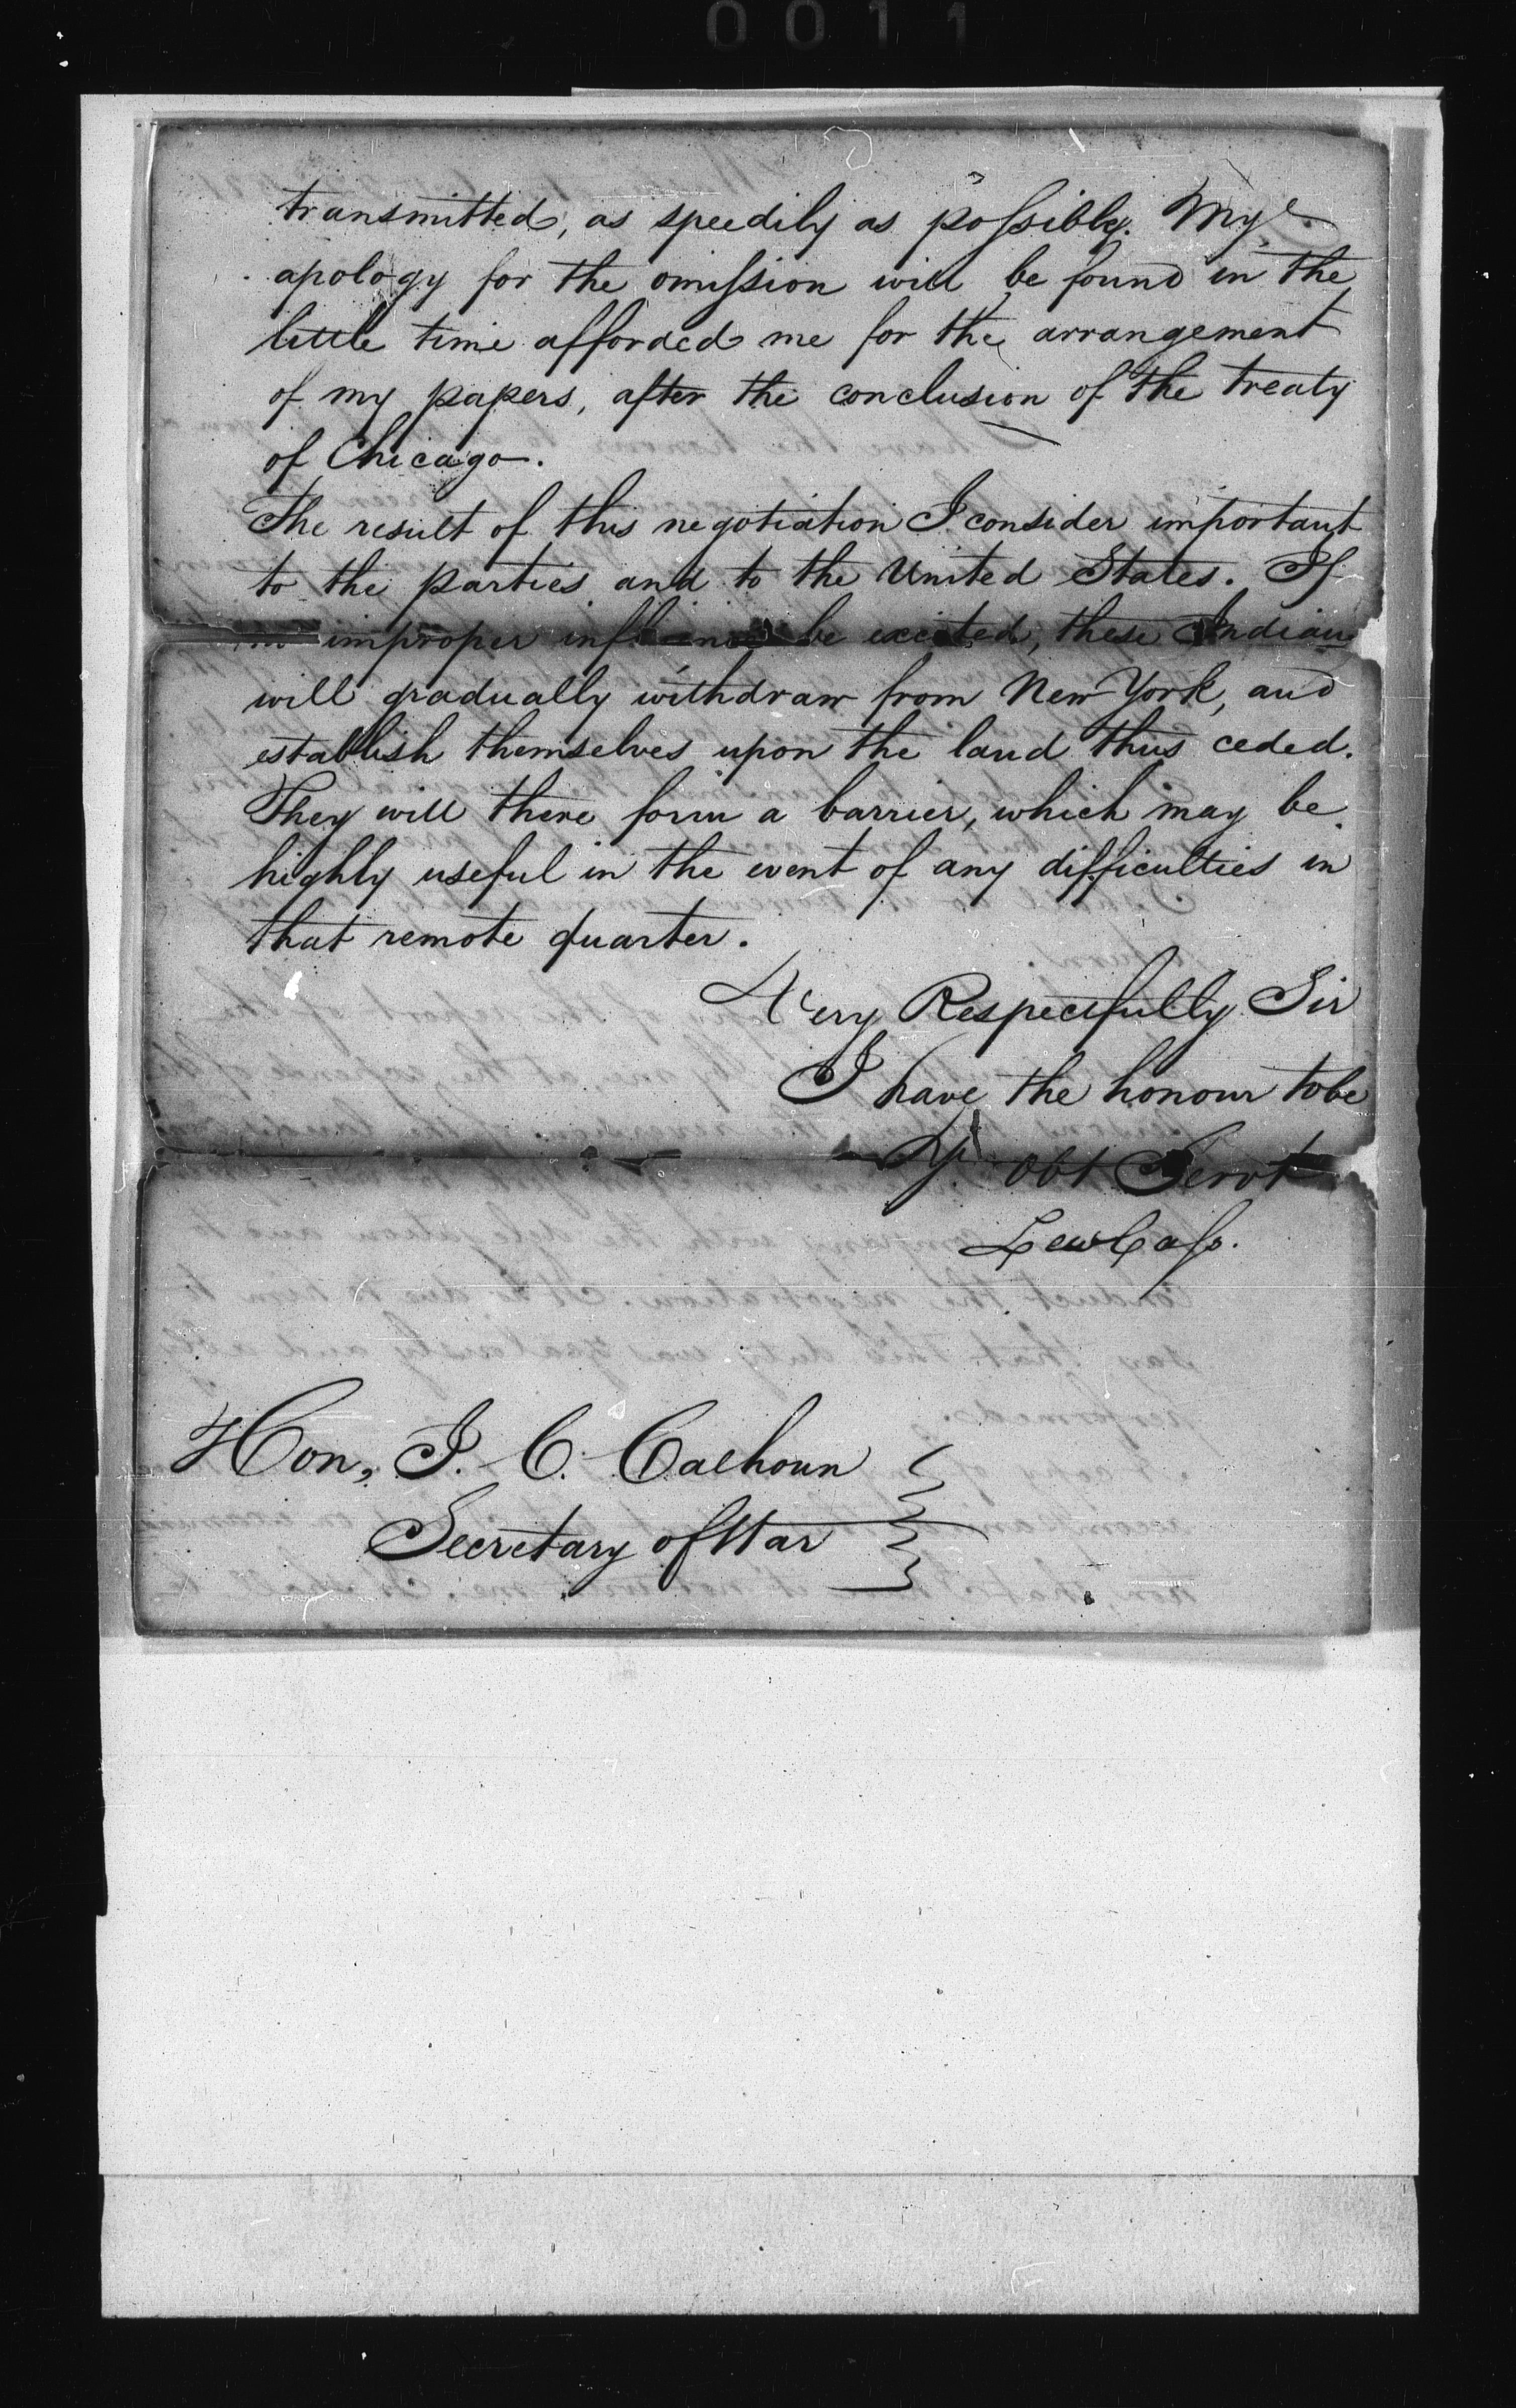 0011
transmitted, as speedily as possible. My
apology for the omission will be found in the
little time afforded me for the arrangement
of my papers, after the conclusion of the treaty
of Chicago.
The result of this negotiation I consider important
to the parties and to the United States. If
no improper influence be exerted, these Indians
will gradually withdraw from New York, and
establish themselves upon the land thus ceded.
They will there form a barrier, which may be
highly useful in the event of any difficulties in
that remote quarter.
Very Respectfully Sir
I have the honour to be
Yr Obt Servt
Lew Cass.
Hon, J. C. Calhoun
Secretary of War